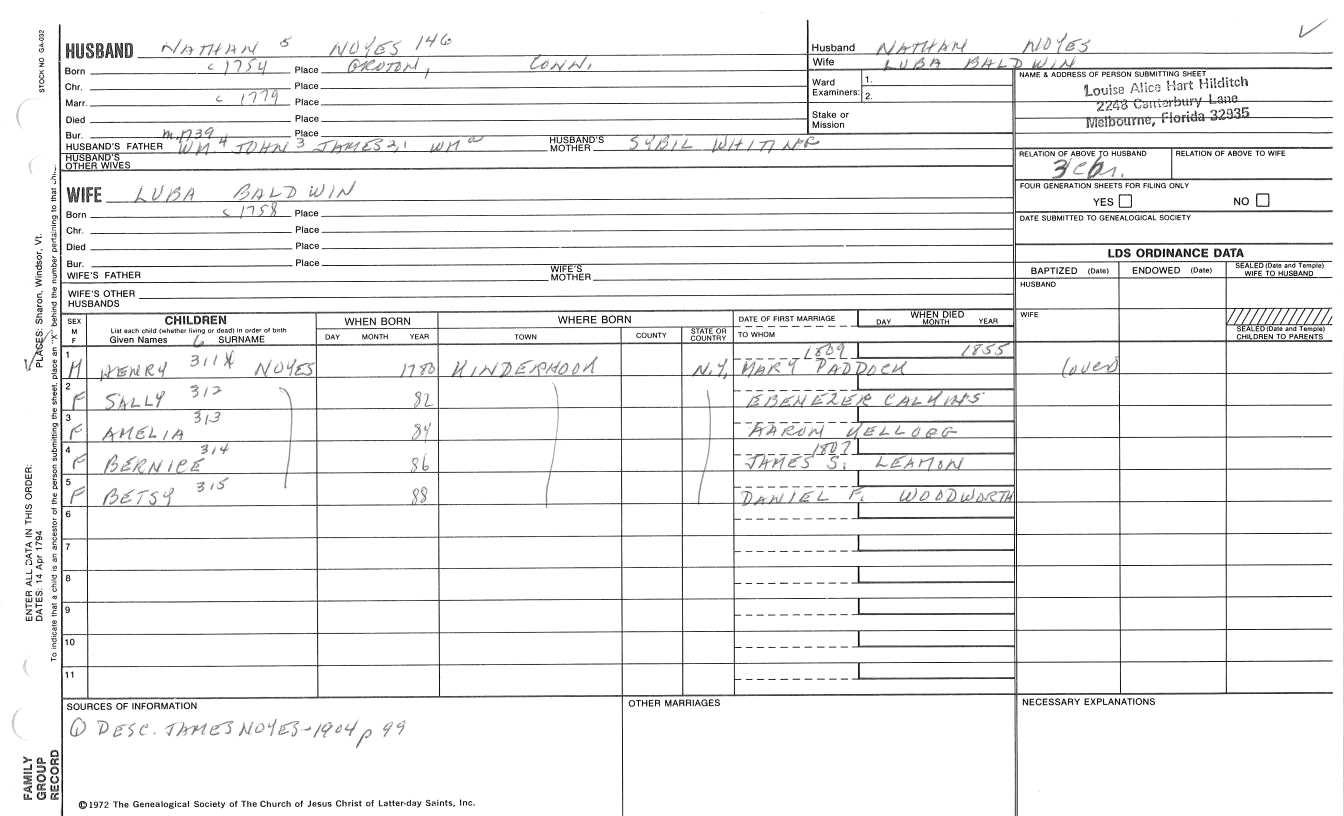 STOCK NO. GA-032
HUSBAND NATHAN 5 NOYES 146
Born c 1754 Place GROTON, CONN.
Chr. Place
Marr. c 1779 Place
Died Place
Bur. m.1739 Place
HUSBAND'S FATHER WM 4 JOHN 3 JAMES 2,1 WM HUSBAND'S MOTHER SYBIL WHITING
HUSBAND'S OTHER WIVES
WIFE LUBA BALDWIN
Born c 1758 Place
Chr. Place
Died Place
Bur. Place
WIFE'S FATHER WIFE'S MOTHER
WIFE'S OTHER HUSBANDS
Husband NATHAN NOYES
Wife LUBA BALDWIN
Ward Examiners: 1.
2.
Stake or Mission
NAME & ADDRESS OF PERSON SUBMITTING SHEET
Louise Alice Hart Hilditch
2248 Canterbury Lane
Melbourne, Florida 32935
RELATION OF ABOVE TO HUSBAND RELATION OF ABOVE TO WIFE
FOUR GENERATION SHEETS FOR FILING ONLY
YES NO
DATE SUBMITTED TO GENEALOGICAL SOCIETY
LDS ORDINANCE DATA
BAPTIZED (Date) ENDOWED (Date) SEALED (Date and Temple) WIFE TO HUSBAND
HUSBAND
WIFE
SEALED (Date and Temple) CHILDREN TO PARENTS
SEX M F CHILDREN WHEN BORN WHERE BORN DATE OF FIRST MARRIAGE WHEN DIED
List each child (whether living or dead) in order of birth DAY MONTH YEAR
Given Names 6 SURNAME DAY MONTH YEAR TOWN COUNTY STATE OR COUNTRY TO WHOM
1 M HENRY 311X NOYES 1780 KINDERHOOK N.Y. 1809 MARY PADDOCK 1855 (over)
2 F SALLY 312 82 EBENEZER CALKINS
3 F AMELIA 313 84 AARON KELLOGG
4 F BERNICE 314 86 1807 JAMES S. LEAMON
5 F BETSY 315 88 DANIEL F. WOODWORTH
6
7
8
9
10
11
SOURCES OF INFORMATION
① DESC. JAMES NOYES-1904 p 99
OTHER MARRIAGES
NECESSARY EXPLANATIONS
©1972 The Genealogical Society of The Church of Jesus Christ of Latter-day Saints, Inc.
ENTER ALL DATA IN THIS ORDER:
DATES: 14 Apr 1794
PLACES: Sharon, Windsor, Vt.
To indicate that a child is an ancestor of the person submitting the sheet, place an "X" behind the number pertaining to that
FAMILY GROUP RECORD